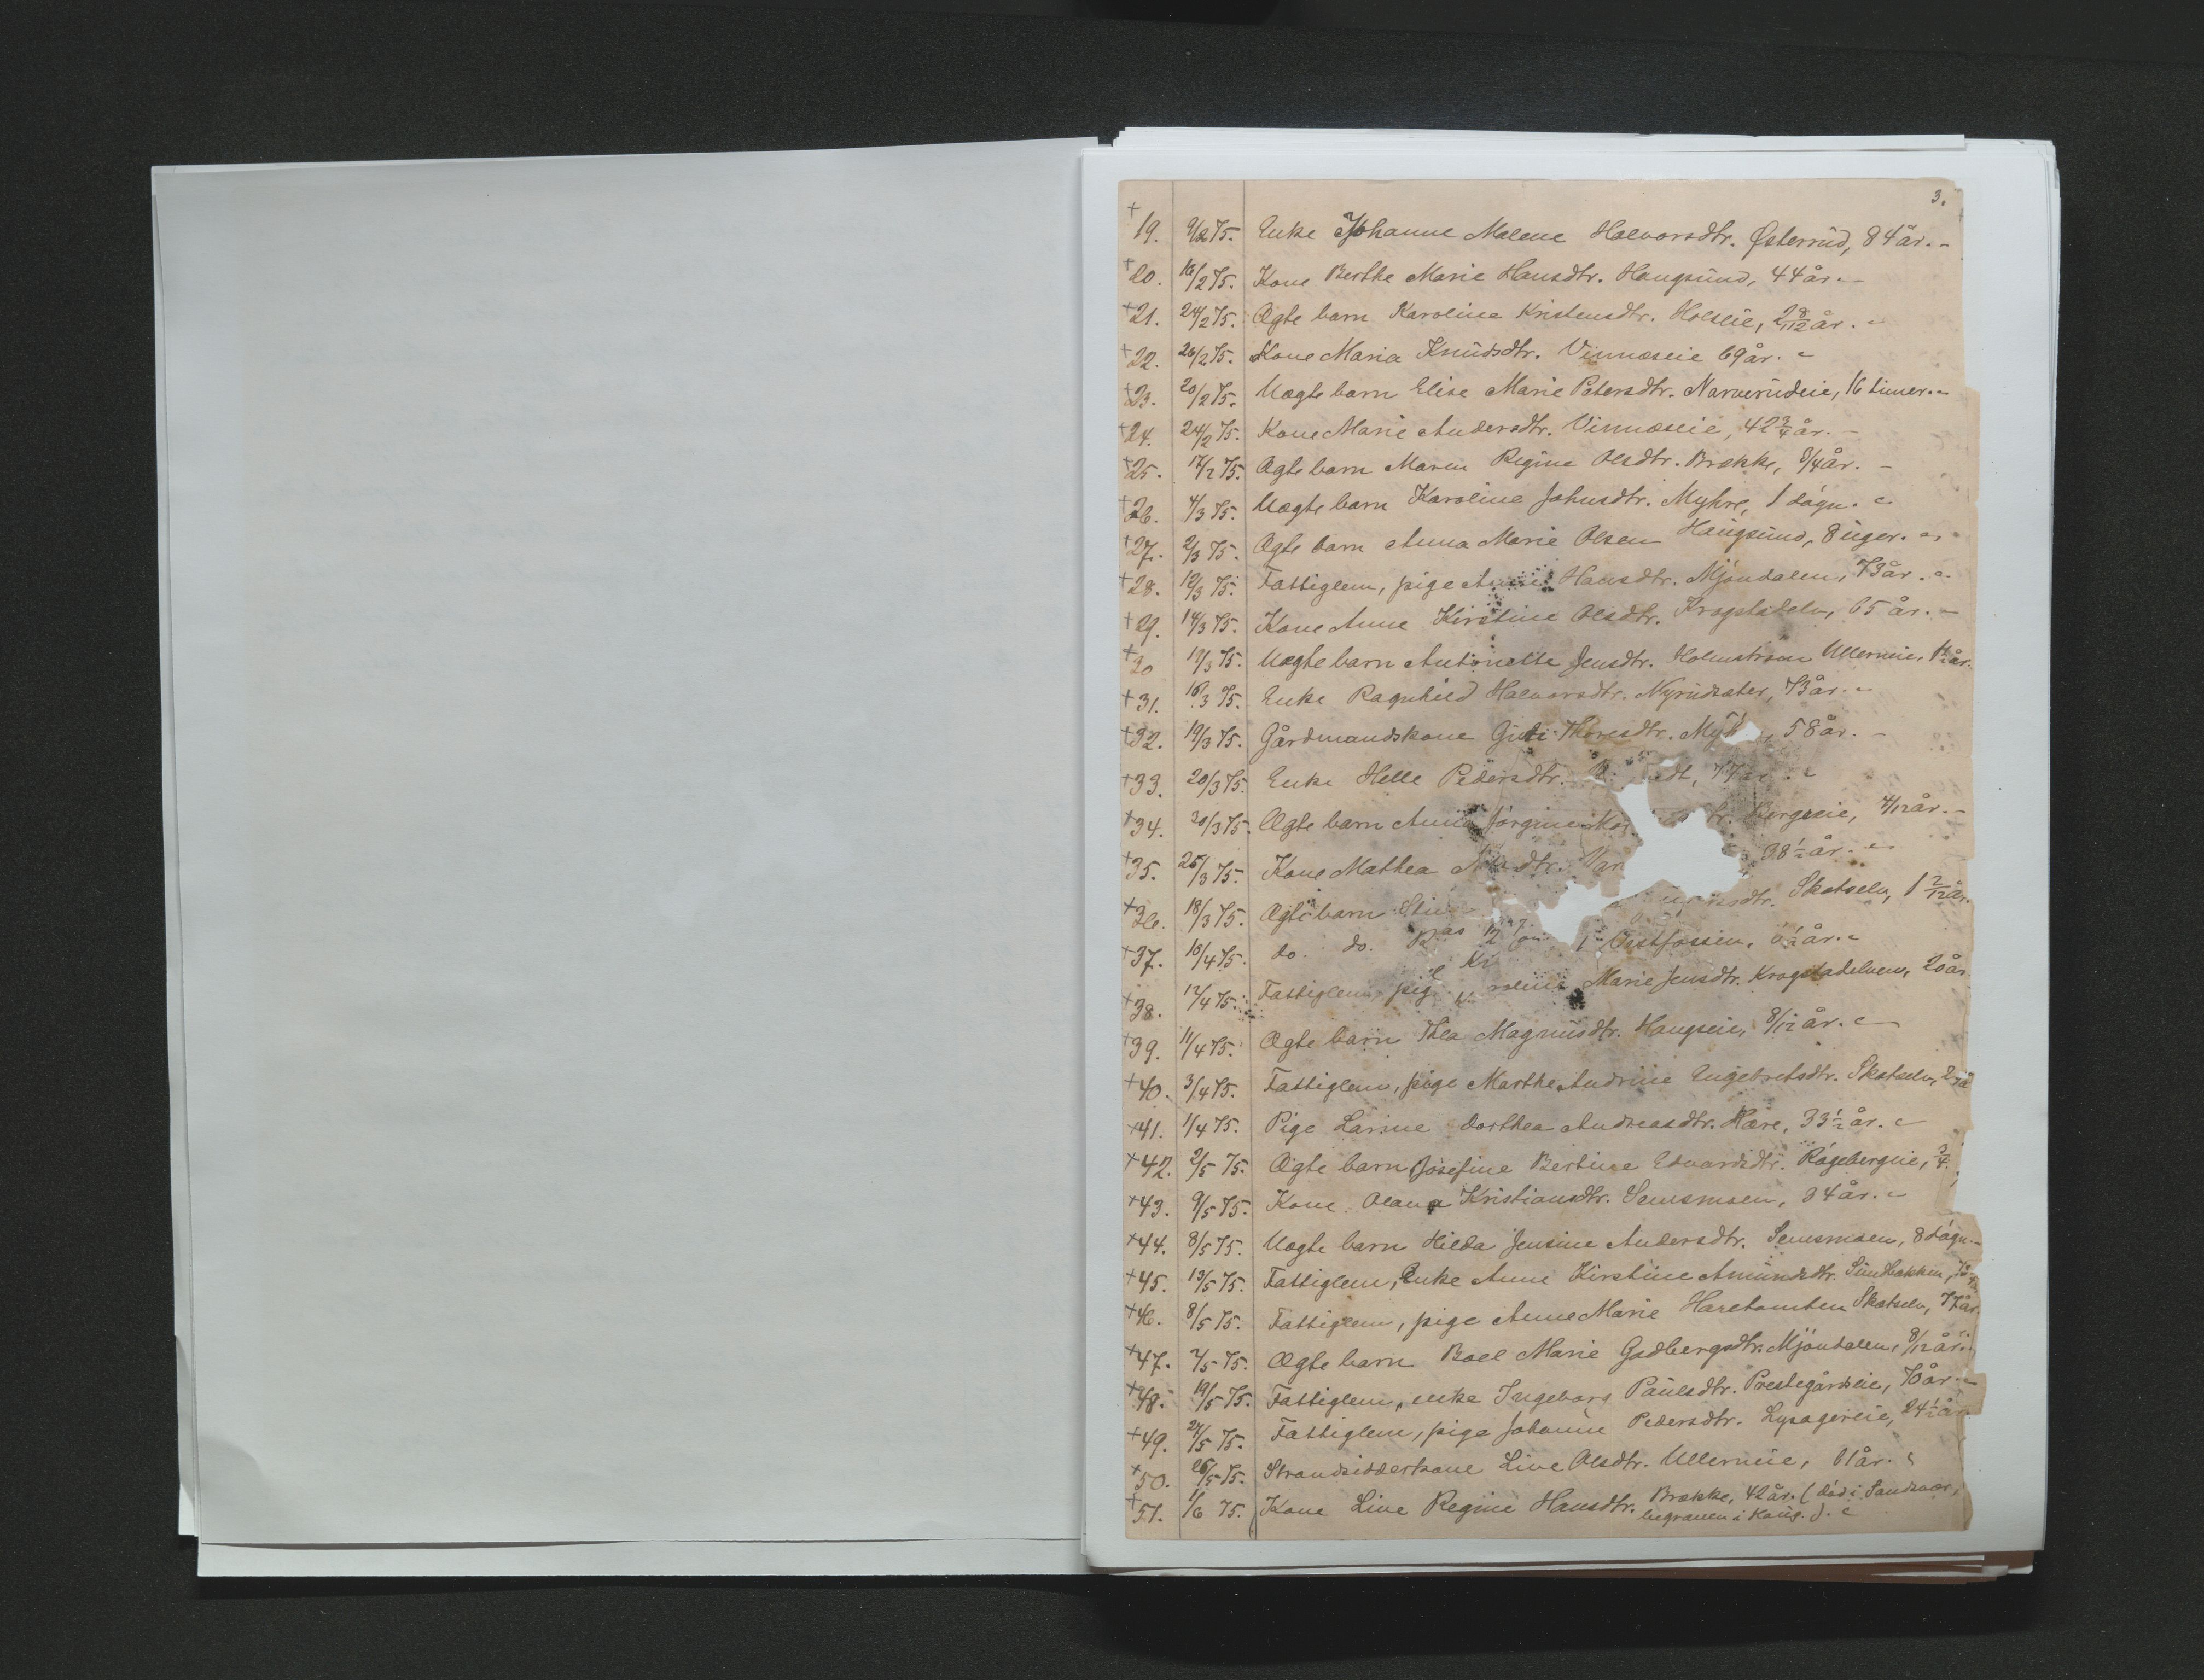 3.
+ 19. 9/2 75. Enke Johanne Malene Halvorsdtr. Østerud, 84 år. -
+ 20. 16/2 75. Kone Berthe Marie Hansdtr. Hougsund, 44 år. -
+ 21. 24/2 75. Ægte barn Karoline Kristensdtr. Holseie, 2 8/12 år. -
+ 22. 26/2 75. Kone Maria Knudsdtr. Vinnæseie 69 år. -
+ 23. 20/2 75. Uægte barn Elise Marie Petersdtr. Narverudeie, 16 timer. -
+ 24. 24/2 75. Kone Marie Andersdtr. Vinnæseie, 42 3/4 år. -
+ 25. 17/2 75. Ægte barn Maren Regine Olsdtr. Brække, 3/4 år. -
+ 26. 4/3 75. Uægte barn Karoline Johnsdtr. Myhre, 1 døgn. -
+ 27. 2/3 75. Ægte barn Anna Marie Olsen Haugsund, 8 uger. -
+ 28. 12/3 75. Fattiglem, pige Hansdtr. Mjøndalen, 73 år. -
+ 29. 14/3 75. Kone Anne Kirstine Olsdtr. Krogstadelv, 65 år. -
+ 30 19/3 75. Uægte barn Antonette Jensdtr. Holmstrøm Ullerneie, 1 1/2 år.
+ 31. 16/3 75. Enke Ragnhild Halvorsdtr. Nyrudsæter, 73 år. -
+ 32. 19/3 75. Gårdmandskone Thoresdtr. , 58 år. -
+ 33. 20/3 75. Enke Helle Pedersdtr. edt, 77 -
+ 34. 20/3 75. Ægte barn Anna Jørgine tr. Bergseie, 4/12 år. -
+ 35. 25/3 75. Kone Mathea dtr. 38 1/2 år. -
+ 36. 18/3 75. Ægte barn sdtr. Skotselv, 1 2/12 år.
+ 37. 10/4 75. do. do. Vestfossen, 6 1/2 år. -
+ 38. 12/4 75. Fattiglem, pige Marie Jensdtr. Krogstadelven, 20 år
+ 39. 11/4 75. Ægte barn Thea Magnusdtr. Haugseie, 8/12 år. -
+ 40. 3/4 75. Fattiglem, pige Marthe Andrine Engebretsdtr. Skotselv,
+ 41. 1/4 75. Pige Larine Dorthea Andreasdtr. Hære, 33 1/2 år. -
+ 42. 2/5 75. Ægte barn Josefine Bertine Edvardsdtr. Røgebergeie, 3/4
+ 43. 9/5 75. Kone Olana Kristiansdtr. Semsmoen, 34 år. -
+ 44. 8/5 75. Uægte barn Hilda Jensine Andersdtr. Semsmoen, 8 døgn. -
+ 45. 13/5 75. Fattiglem, Enke Anne Kirstine Amundsdtr. Sundbakken,
+ 46. 8/5 75. Fattiglem, pige Anne Marie Haretomten Skotselv, 77 år.
+ 47. 2/5 75. Ægte barn Boel Marie Gudbergsdtr. Mjøndalen, 8/12 år.
+ 48. 19/5 75. Fattiglem, enke Ingeborg Paulsdtr. Prestegårdseie, 70 år. -
+ 49. 24/5 75. Fattiglem, pige Johanne Pedersdtr. Lysagereie, 24 1/2 år.
+ 50. 26/5 75. Strandsidderkone Live Olsdtr. Ullerneie, 61 år.
+ 51. 1/6 75. Kone Live Regine Hansdtr. Brække, 42 år. (død i Sandsvær,
begraven i Haug.). -